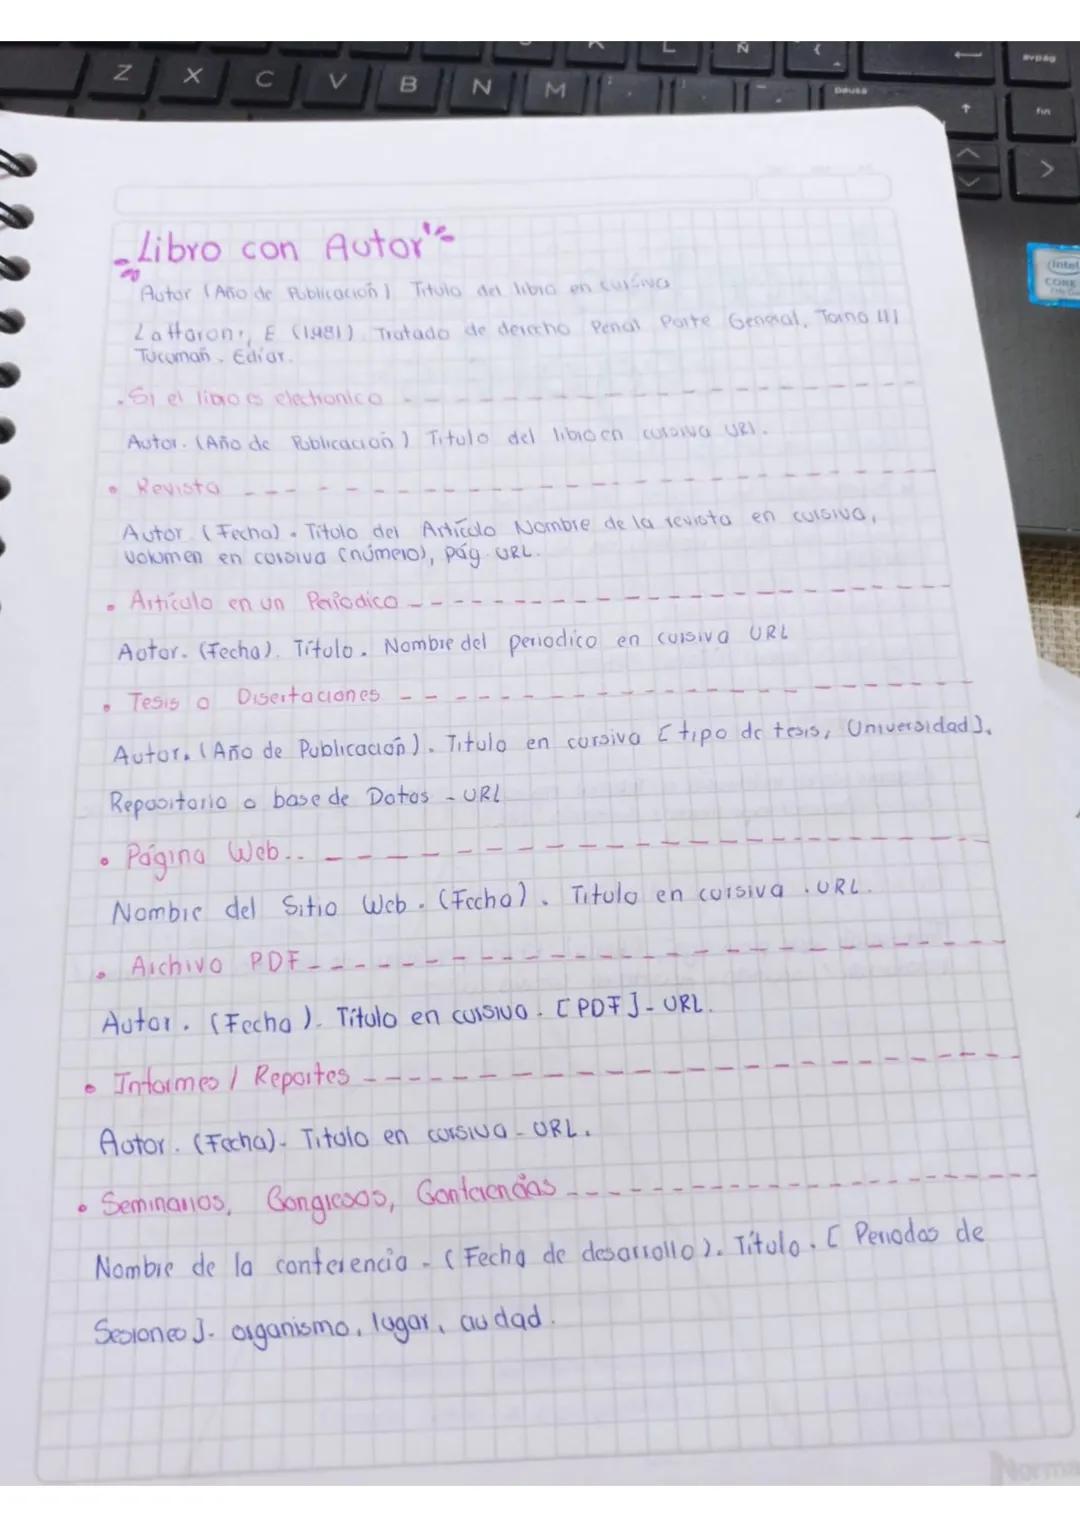 Z X C V B N M
L Ñ {
Pausa
avpág
fin
intel
CORE
Libro con Autor
Autor (Año de Publicación) Titulo del libro en cursiva
Laffaron, E (1981) Tratado de derecho Penal Parte General, Tomo III
Tucuman. Ediar.
. Si el libro es electronico
Autor. (Año de Publicación) Titulo del libro en cursiva URl.
• Revista
Autor (Fecha). Titulo del Artículo Nombre de la revista en cursiva,
volumen en cursiva (número), pág. URL.
• Artículo en un Periodico
Autor. (Fecha). Título. Nombre del periodico en cursiva URL
• Tesis o Disertaciones
Autor. (Año de Publicación). Titulo en cursiva [tipo de tesis, Universidad].
Repositorio o base de Datos - URL
• Página Web..
Nombre del Sitio Web. (Fecha). Titulo en cursiva .URL.
• Archivo PDF
Autor. (Fecha). Título en cursiva. [PDF]- URL.
• Informes / Reportes
Autor. (Fecha)- Titulo en cursiva - URL.
• Seminarios, Congresos, Conferencias
Nombre de la conferencia - (Fecha de desarrollo). Título. [ Periodos de
Sesiones]. organismo, lugar, ciudad.
Norma